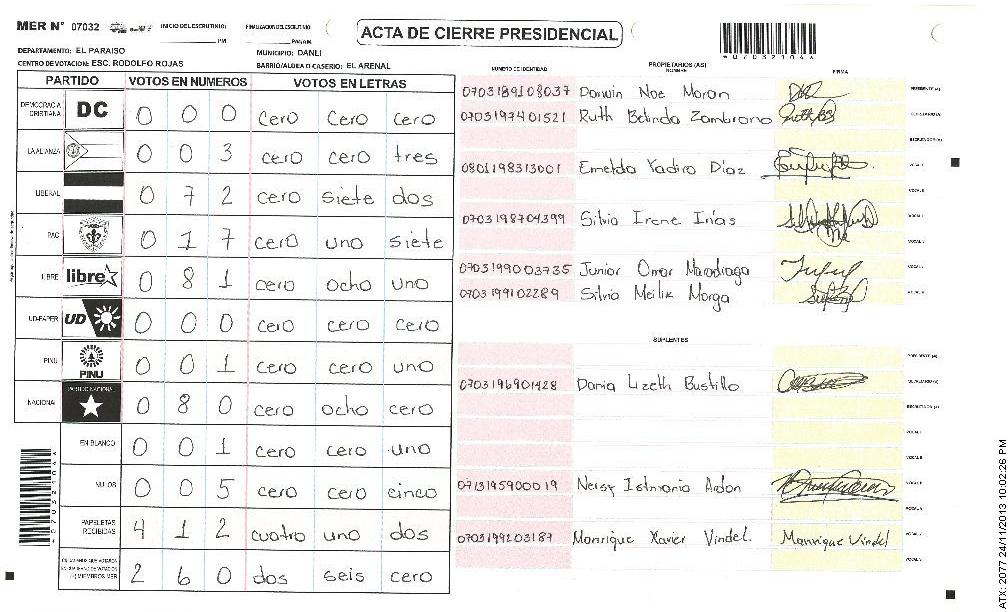 MER N° 07032 INICIO DEL ESCRUTINIO: PM FINALIZACION DEL ESCRUTINIO: PM/AM
ACTA DE CIERRE PRESIDENCIAL
*07032104*
DEPARTAMENTO: EL PARAISO MUNICIPIO: DANLI
CENTRO DE VOTACION: ESC. RODOLFO ROJAS BARRIO/ALDEA O CASERIO: EL ARENAL
PARTIDO VOTOS EN NUMEROS VOTOS EN LETRAS
DEMOCRACIA CRISTIANA DC 0 0 0 cero cero cero
LA ALIANZA 0 0 3 cero cero tres
LIBERAL 0 7 2 cero siete dos
PAC 0 1 7 cero uno siete
LIBRE libre 0 8 1 cero ocho uno
UD-FAPER UD 0 0 0 cero cero cero
PINU PINU 0 0 1 cero cero uno
NACIONAL PARTIDO NACIONAL 0 8 0 cero ocho cero
EN BLANCO 0 0 1 cero cero uno
NULOS 0 0 5 cero cero cinco
PAPELETAS RECIBIDAS 4 1 2 cuatro uno dos
MIEMBROS MER 2 6 0 dos seis cero
NUMERO DE IDENTIDAD PROPIETARIOS (AS) NOMBRE FIRMA
0703189108037 Darwin Noe Moran PRESIDENTE (A)
0703197401521 Ruth Belinda Zambrano SECRETARIO (A)
ESCRUTADOR (A)
0801198313001 Emelda Yadira Diaz VOCAL
0703198704399 Silvia Irene Irias VOCAL
0703199003735 Junior Omar VOCAL
0703199102289 Silvia VOCAL
SUPLENTES
PRESIDENTE (A)
0703196901428 Dania Lizeth Bustillo SECRETARIO (A)
ESCRUTADOR (A)
VOCAL
VOCAL
0713195900019 Ardon VOCAL
VOCAL
0703199203187 Manrique Xavier Vindel. Manrique Vindel VOCAL
VOCAL
*07032104*
ATX: 2077 24/11/2013 10:02:26 PM